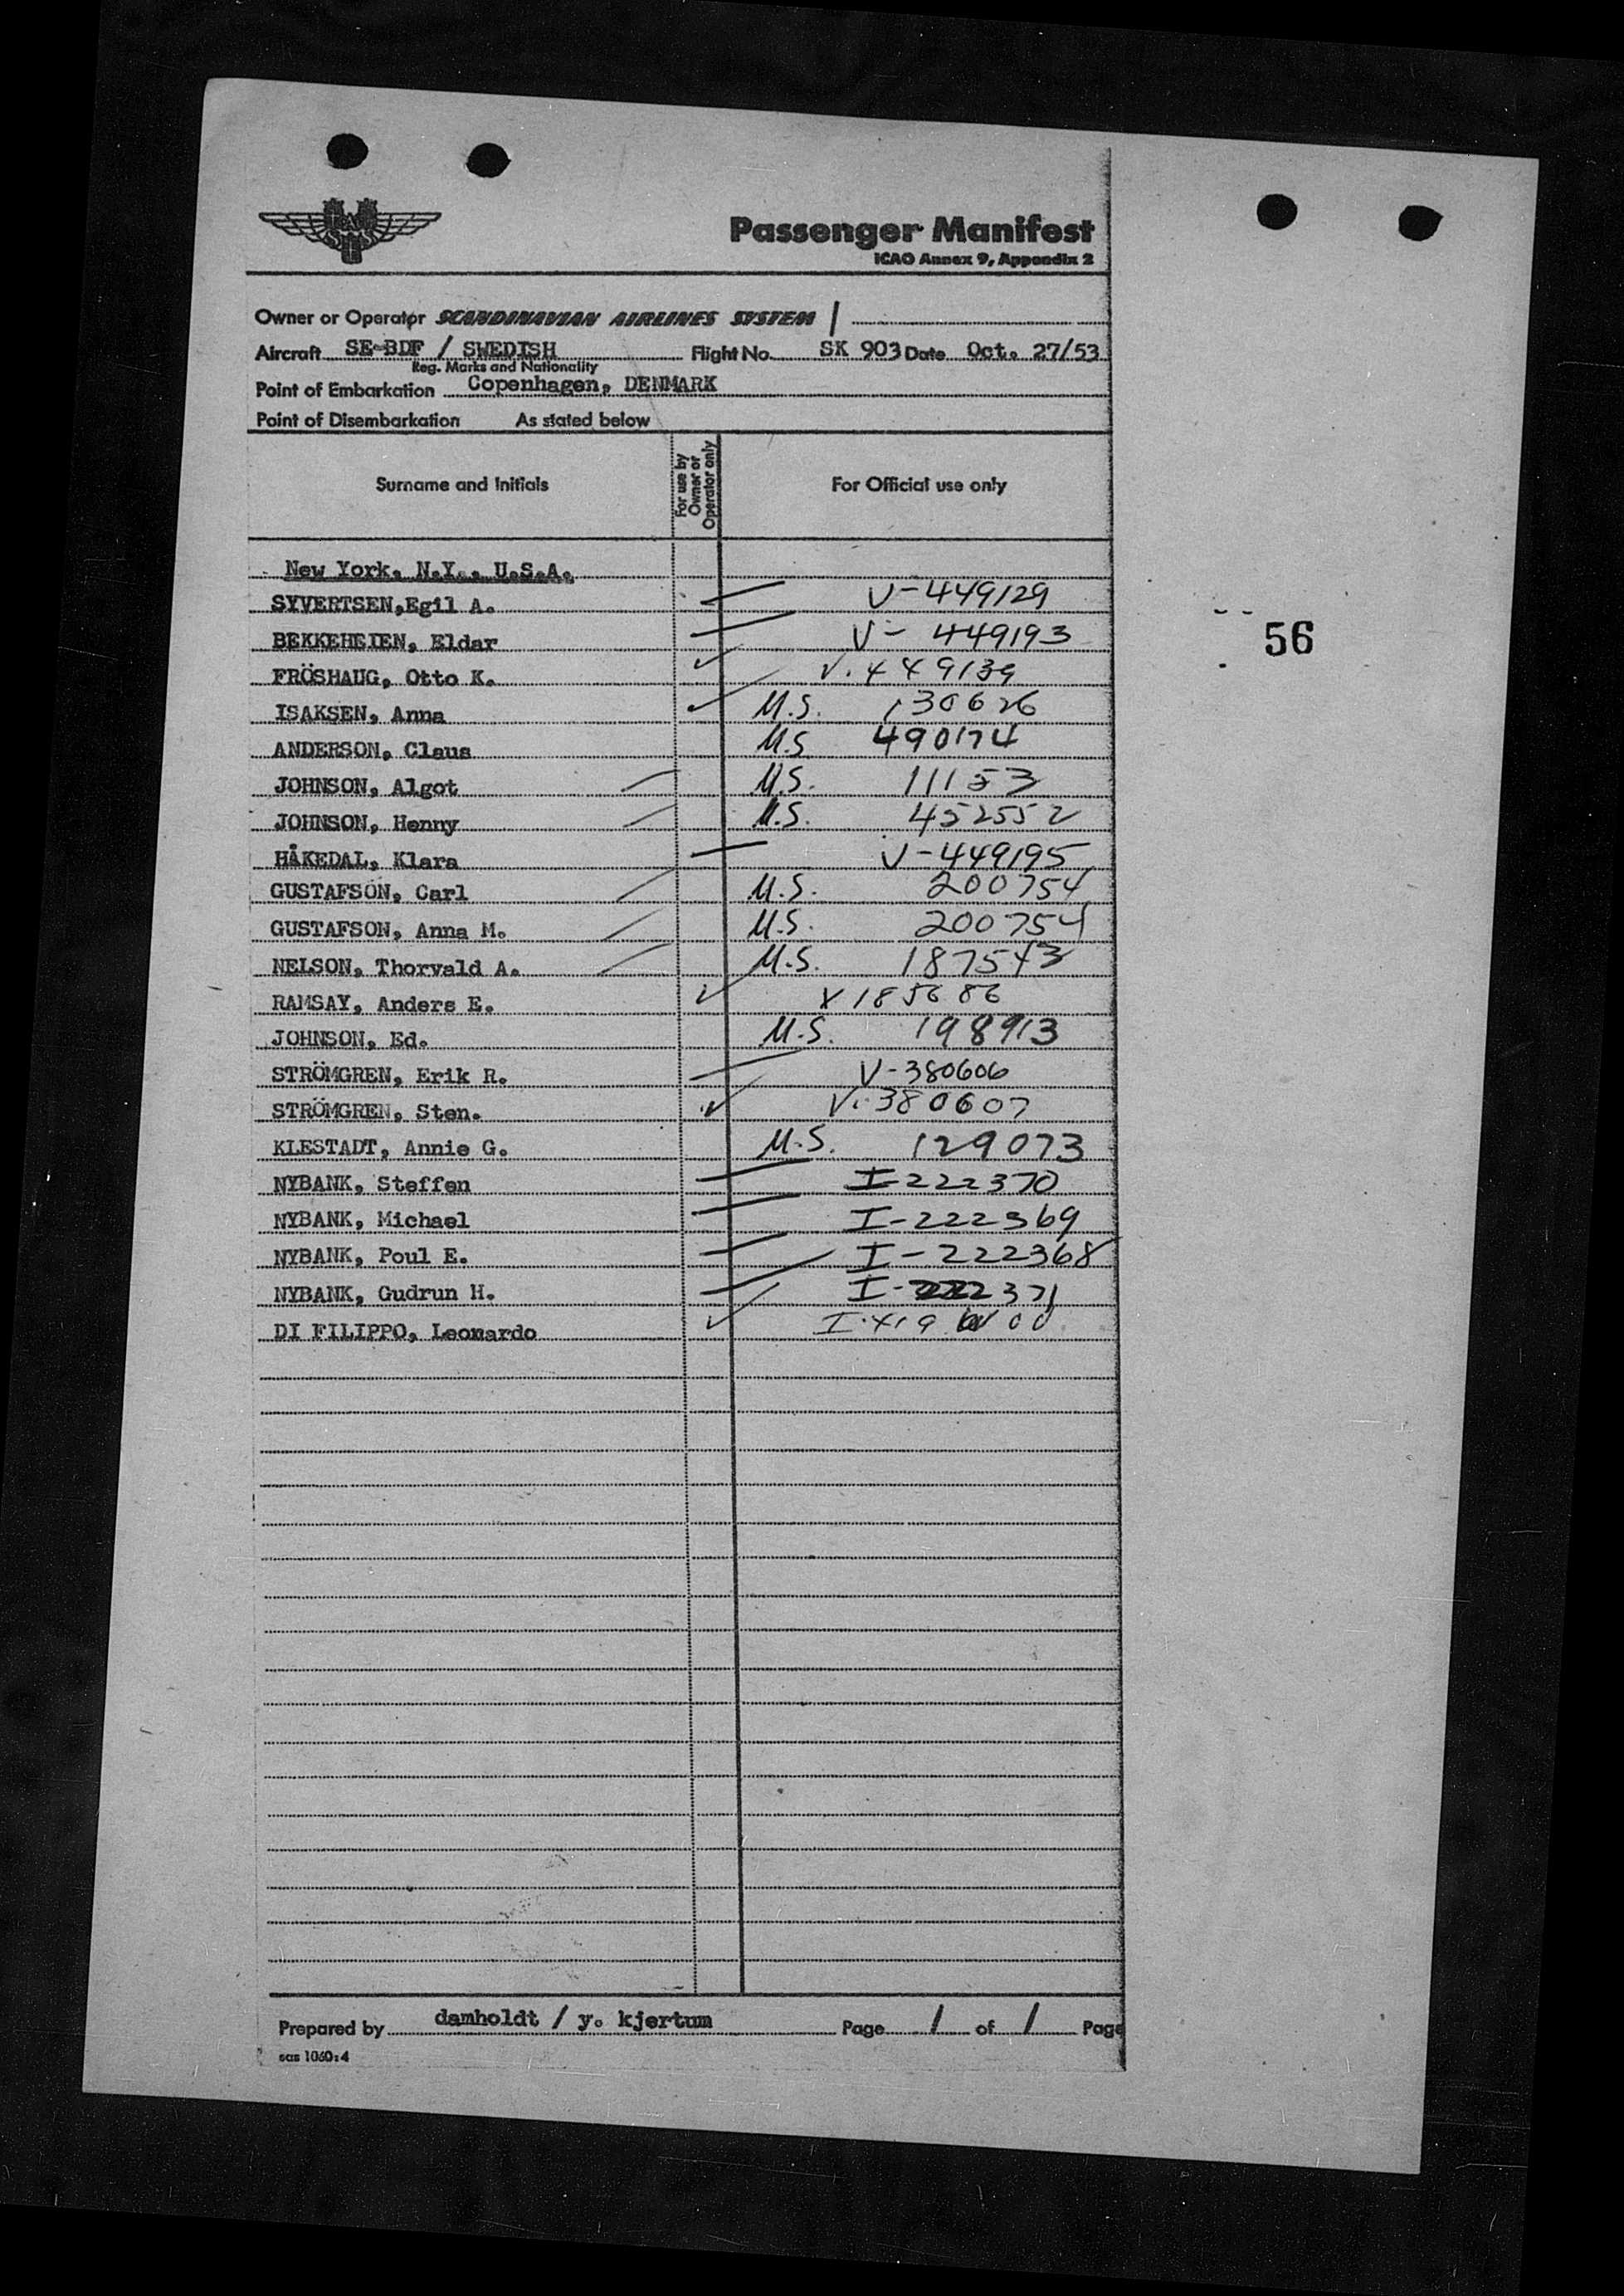 SAS
Passenger Manifest
ICAO Annex 9, Appendix 2
Owner or Operator SCANDINAVIAN AIRLINES SYSTEM /
Aircraft SE-BDF / SWEDISH Flight No. SK 903 Date Oct. 27/53
Reg. Marks and Nationality
Point of Embarkation Copenhagen, DENMARK
Point of Disembarkation As stated below
Surname and Initials For use by Owner or Operator only For Official use only
New York, N.Y., U.S.A.
SYVERTSEN,Egil A. V-449129
BEKKEHEIEN, Eldar V- 449193
56
FRÖSHAUG, Otto K. V.449139
ISAKSEN, Anna U.S. 130626
ANDERSON, Claus U.S 490174
JOHNSON, Algot U.S. 11153
JOHNSON, Henny U.S. 452552
HÅKEDAL, Klara V-449195
GUSTAFSON, Carl U.S. 200754
GUSTAFSON, Anna M. U.S. 200754
NELSON, Thorvald A. U.S. 187543
RAMSAY, Anders E. V185686
JOHNSON, Ed. U.S. 198913
STRÖMGREN, Erik R. V-380606
STRÖMGREN, Sten. V.380607
KLESTADT, Annie G. U.S. 129073
NYBANK, Steffen I-222370
NYBANK, Michael I-222369
NYBANK, Poul E. I-222368
NYBANK, Gudrun H. I-222371
DI FILIPPO, Leonardo
Prepared by damholdt / y. kjertum Page 1 of 1 Page
sas 1060:4